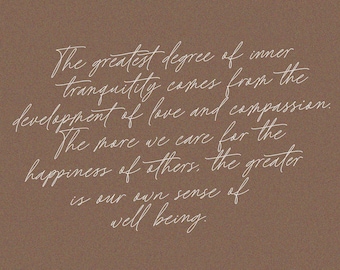 The greatest degree of inner
tranquility comes from the
development of love and compassion.
The more we care for the
happiness of others, the greater
is our own sense of
well being.